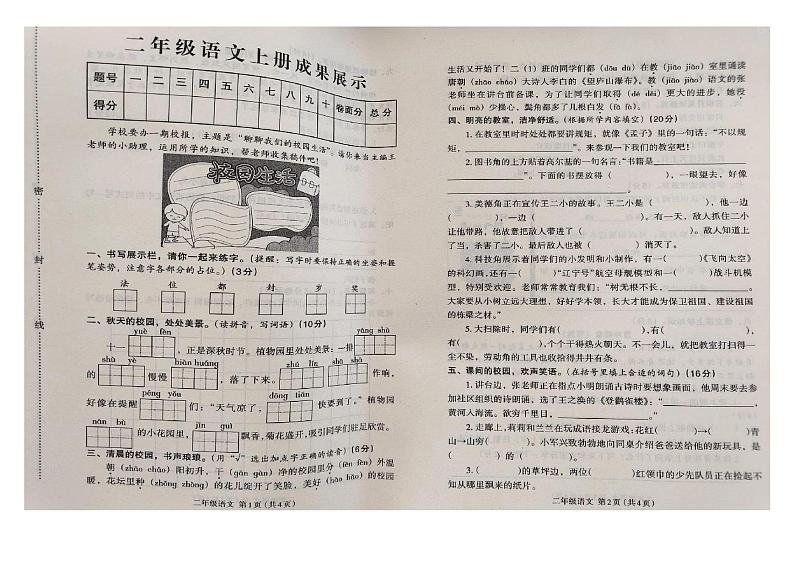 二年级语文上册成果展示
题号 一 二 三 四 五 六 七 八 九 十 卷面分 总分
得分
学校委办一期校报，主题是“聊聊我们的校园生活”。请你来当主编王
老师的小助理，运用所学的知识，帮老师收集稿件吧！
校园生活
密
封
线
一、书写展示栏，请你一起来练字。(提醒：写字时要保持正确的坐姿和握
笔姿势，注意字各部分的占位。)(3分)
法 位 都 封 岁 奖
二、秋天的校园，处处美景。(读拼音，写词语)(10分)
yuè fèn yáng shù
十一 ，正是深秋时节。植物园里处处美景：一排
shù yè zhōu shā shā
的 慢慢 ，落了下来。 发出 作响，
dòng wù kuài
好像在提醒 们：“天气凉了， 快要到了。”植物园
的小花园里， 飘香，菊花盛开，吸引同学们驻足欣赏。
三、清晨的校园，书声琅琅。(用“√”选出加点字正确的读音)(6分)
朝(zhāo cháo)阳初升，干(gān gàn)净的校园里分(fēn fèn)外温
暖，花坛里种(zhǒng zhòng)的花儿绽开了笑脸，美好(hǎo hào)的校园
二年级语文 第1页(共4页)
生活又开始了！二(1)班的同学们都(dōu dū)在教(jiāo jiào)室里诵读
唐朝(zhāo cháo)大诗人李白的《望庐山瀑布》。教(jiāo jiào)语文的张
老师坐在讲台前备课，为了让同学们取得(dé děi)更大的进步，她没
(méi mò)少操心，鬓角都多了几根白发(fà fā)。
四、明亮的教室，洁净舒适。(根据所学内容填空)(20分)
1.在教室里时时处处都要讲规矩，就像《孟子》里的一句话：“不以规
矩， 。”来参观一下我们的教室吧！
2.图书角的上方贴着高尔基的一句名言：“书籍是
”。下面的书摆放得( )，一眼望去，好像
。
3.美德角正在宣传王二小的故事。王二小是( )，他一边
( )，一边( )。有一天，敌人抓住二小
让他带路，他故意把敌人带进了( )。敌人知道上
了当，杀害了二小。最后敌人也被( )消灭了。
4.科技角展示着同学们的小发明和小制作。有( )《飞向太空》
的科幻画，还有( )“辽宁号”航空母舰模型和( )战斗机模
型，特别受欢迎。老师常常教育我们：“树无根不长， 。”
大家要从小树立远大理想，好好学本领，长大才能成为保卫祖国、建设祖国
的栋梁之材。”
5.大扫除时，同学们有( )，有( )，
有( )，个个干得热火朝天。不一会儿，就把教室打扫得一
尘不染，劳动角的工具也收拾得井井有条。
五、课间的校园，欢声笑语。(在括号里填上合适的词句)(16分)
1.讲台边，张老师正在指点小明朗诵古诗时要想象画面，他周末要去参
加社区组织的诗朗诵，选了王之涣的《登鹳雀楼》：“ ，
黄河入海流。欲穷千里目， 。”
2.走廊上，莉莉和兰兰在玩成语接龙游戏：花红( )→( )青
山→山穷( )。小军兴致勃勃地向同桌介绍爸爸送给他的新玩具，是
( )的( )。
3.( )的草坪边，两位( )红领巾的少先队员正在捡起不
知从哪里飘来的纸片。
二年级语文 第2页(共4页)